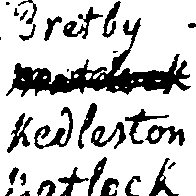 Bretby
Kedleston
Matlock